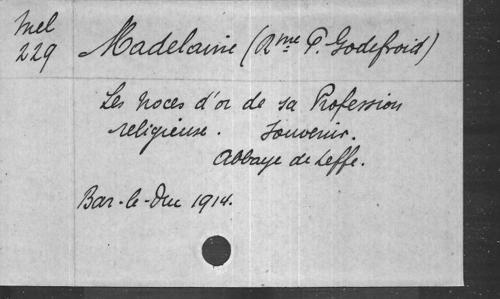 Mel
229
Madelaine (Rme P. Godefroid)
Les Noces d'or de sa Profession
religieuse. Souvenir.
Abbaye de Leffe.
Bar-le-Duc 1914.